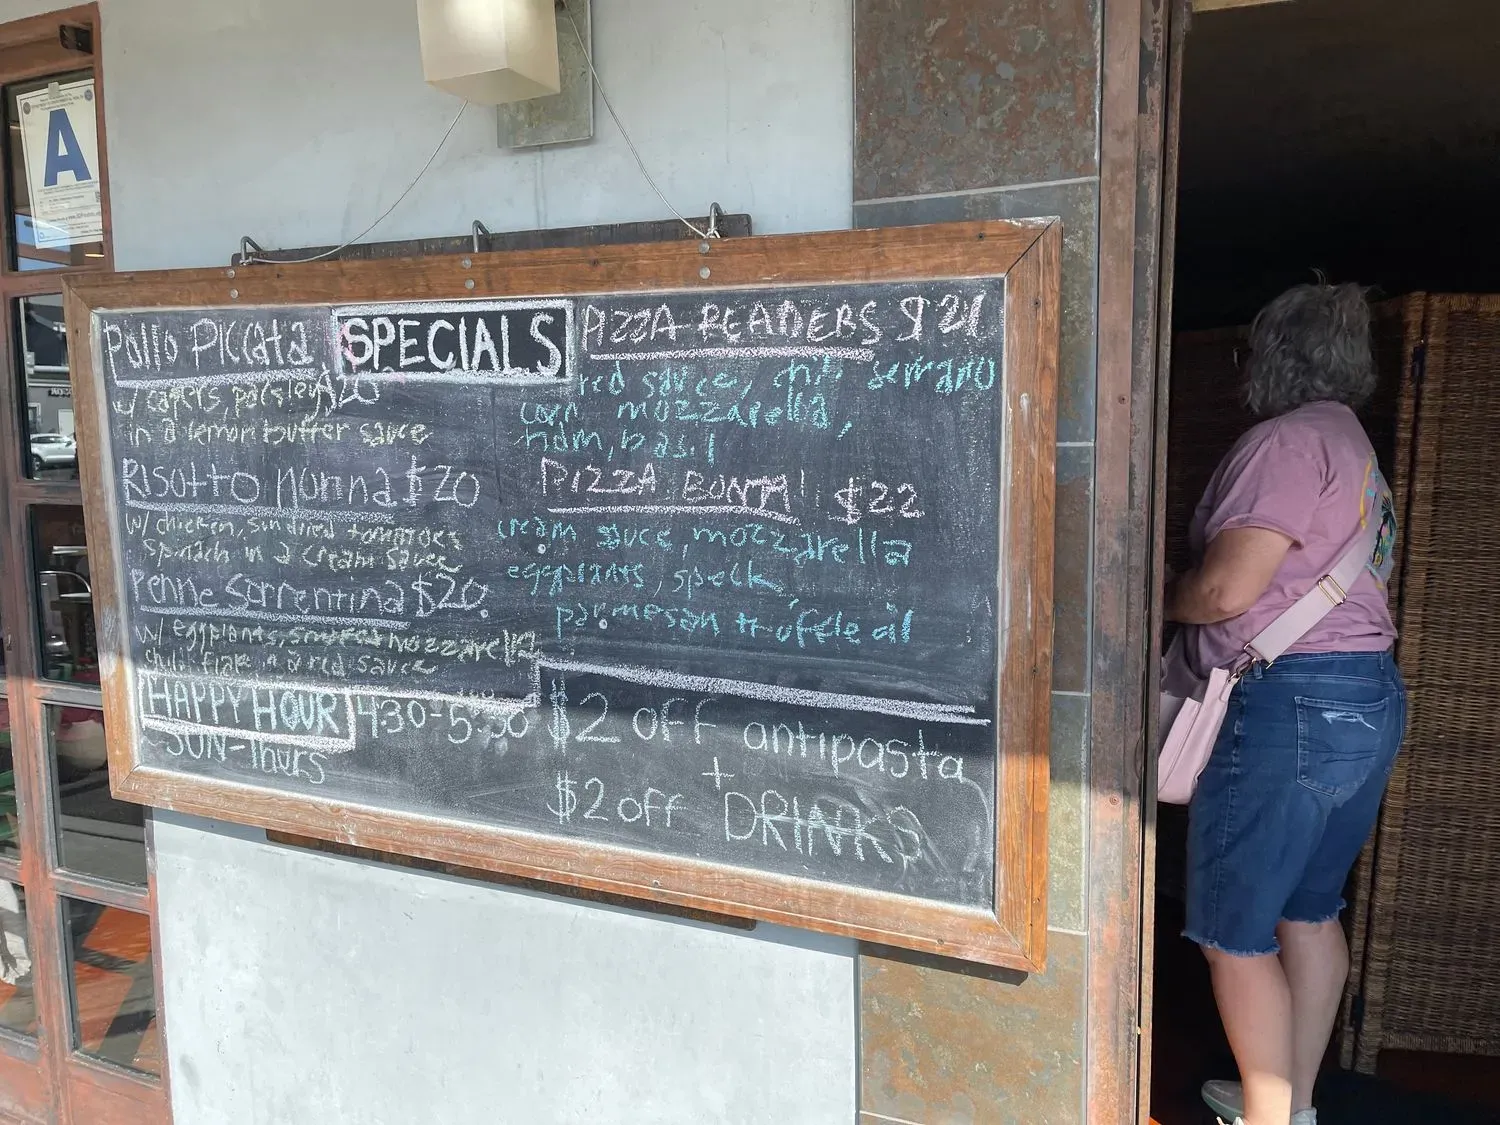 A
SPECIALS
Pollo Piccata
$20
w/ capers, parsley
in a lemon butter sauce
Risotto Nonna $20
w/ chicken, sun dried tomatoes
spinach in a cream sauce
Penne Sorrentina $20
w/ eggplants, smoked mozzarella
chili flake in a red sauce
HAPPY HOUR 430-5:30
SUN-Thurs
PIZZA READERS $21
red sauce, chili serrano
corn mozzarella,
ham, basil
PIZZA BONTA! $22
cream sauce, mozzarella
eggplants, speck,
parmesan truffle oil
$2 OFF antipasta
+
$2 off DRINKS